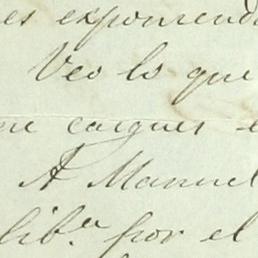 es exponiendo
Veo lo que
me caigues
A Manuel
lib.ª por el